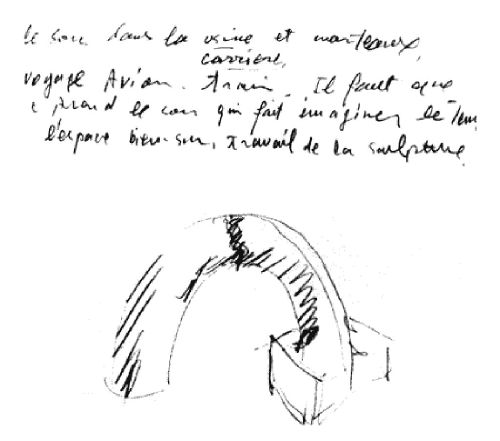 le son dans la usine et marteaux,
carrière,
voyage Avion. train. Il faut que
prend le son qui fait imaginer le tem
l'espace bien-sur, travail de la sculpture